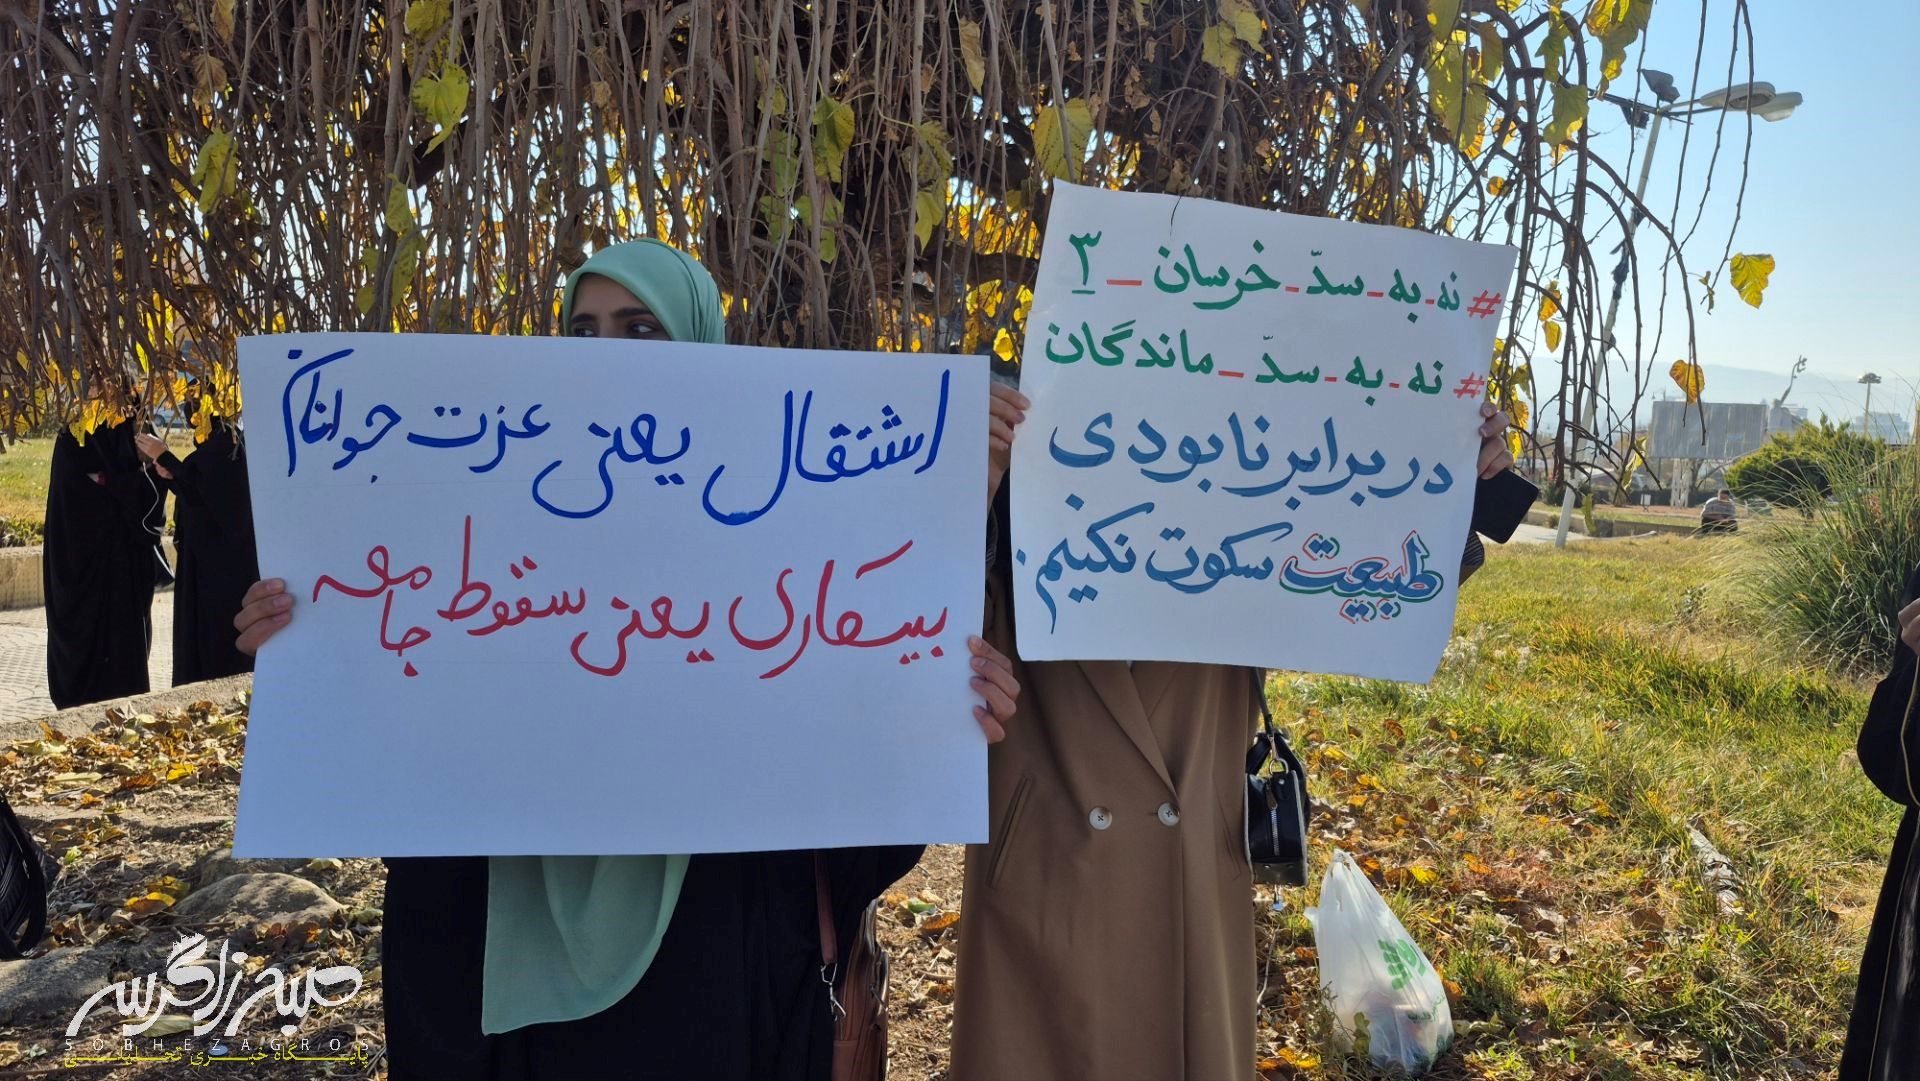 اشتقال یعنی عزت جوانان
بیکاری یعنی سقوط جامعه
#نه-به-سدّ-خرسان_۳
#نه-به-سدّ-ماندگان
در برابر نابودی
طبیعت سکوت نکنیم.
صبح زاگرس
SOBHEZAGROS
پایگاه خبری تحلیلی